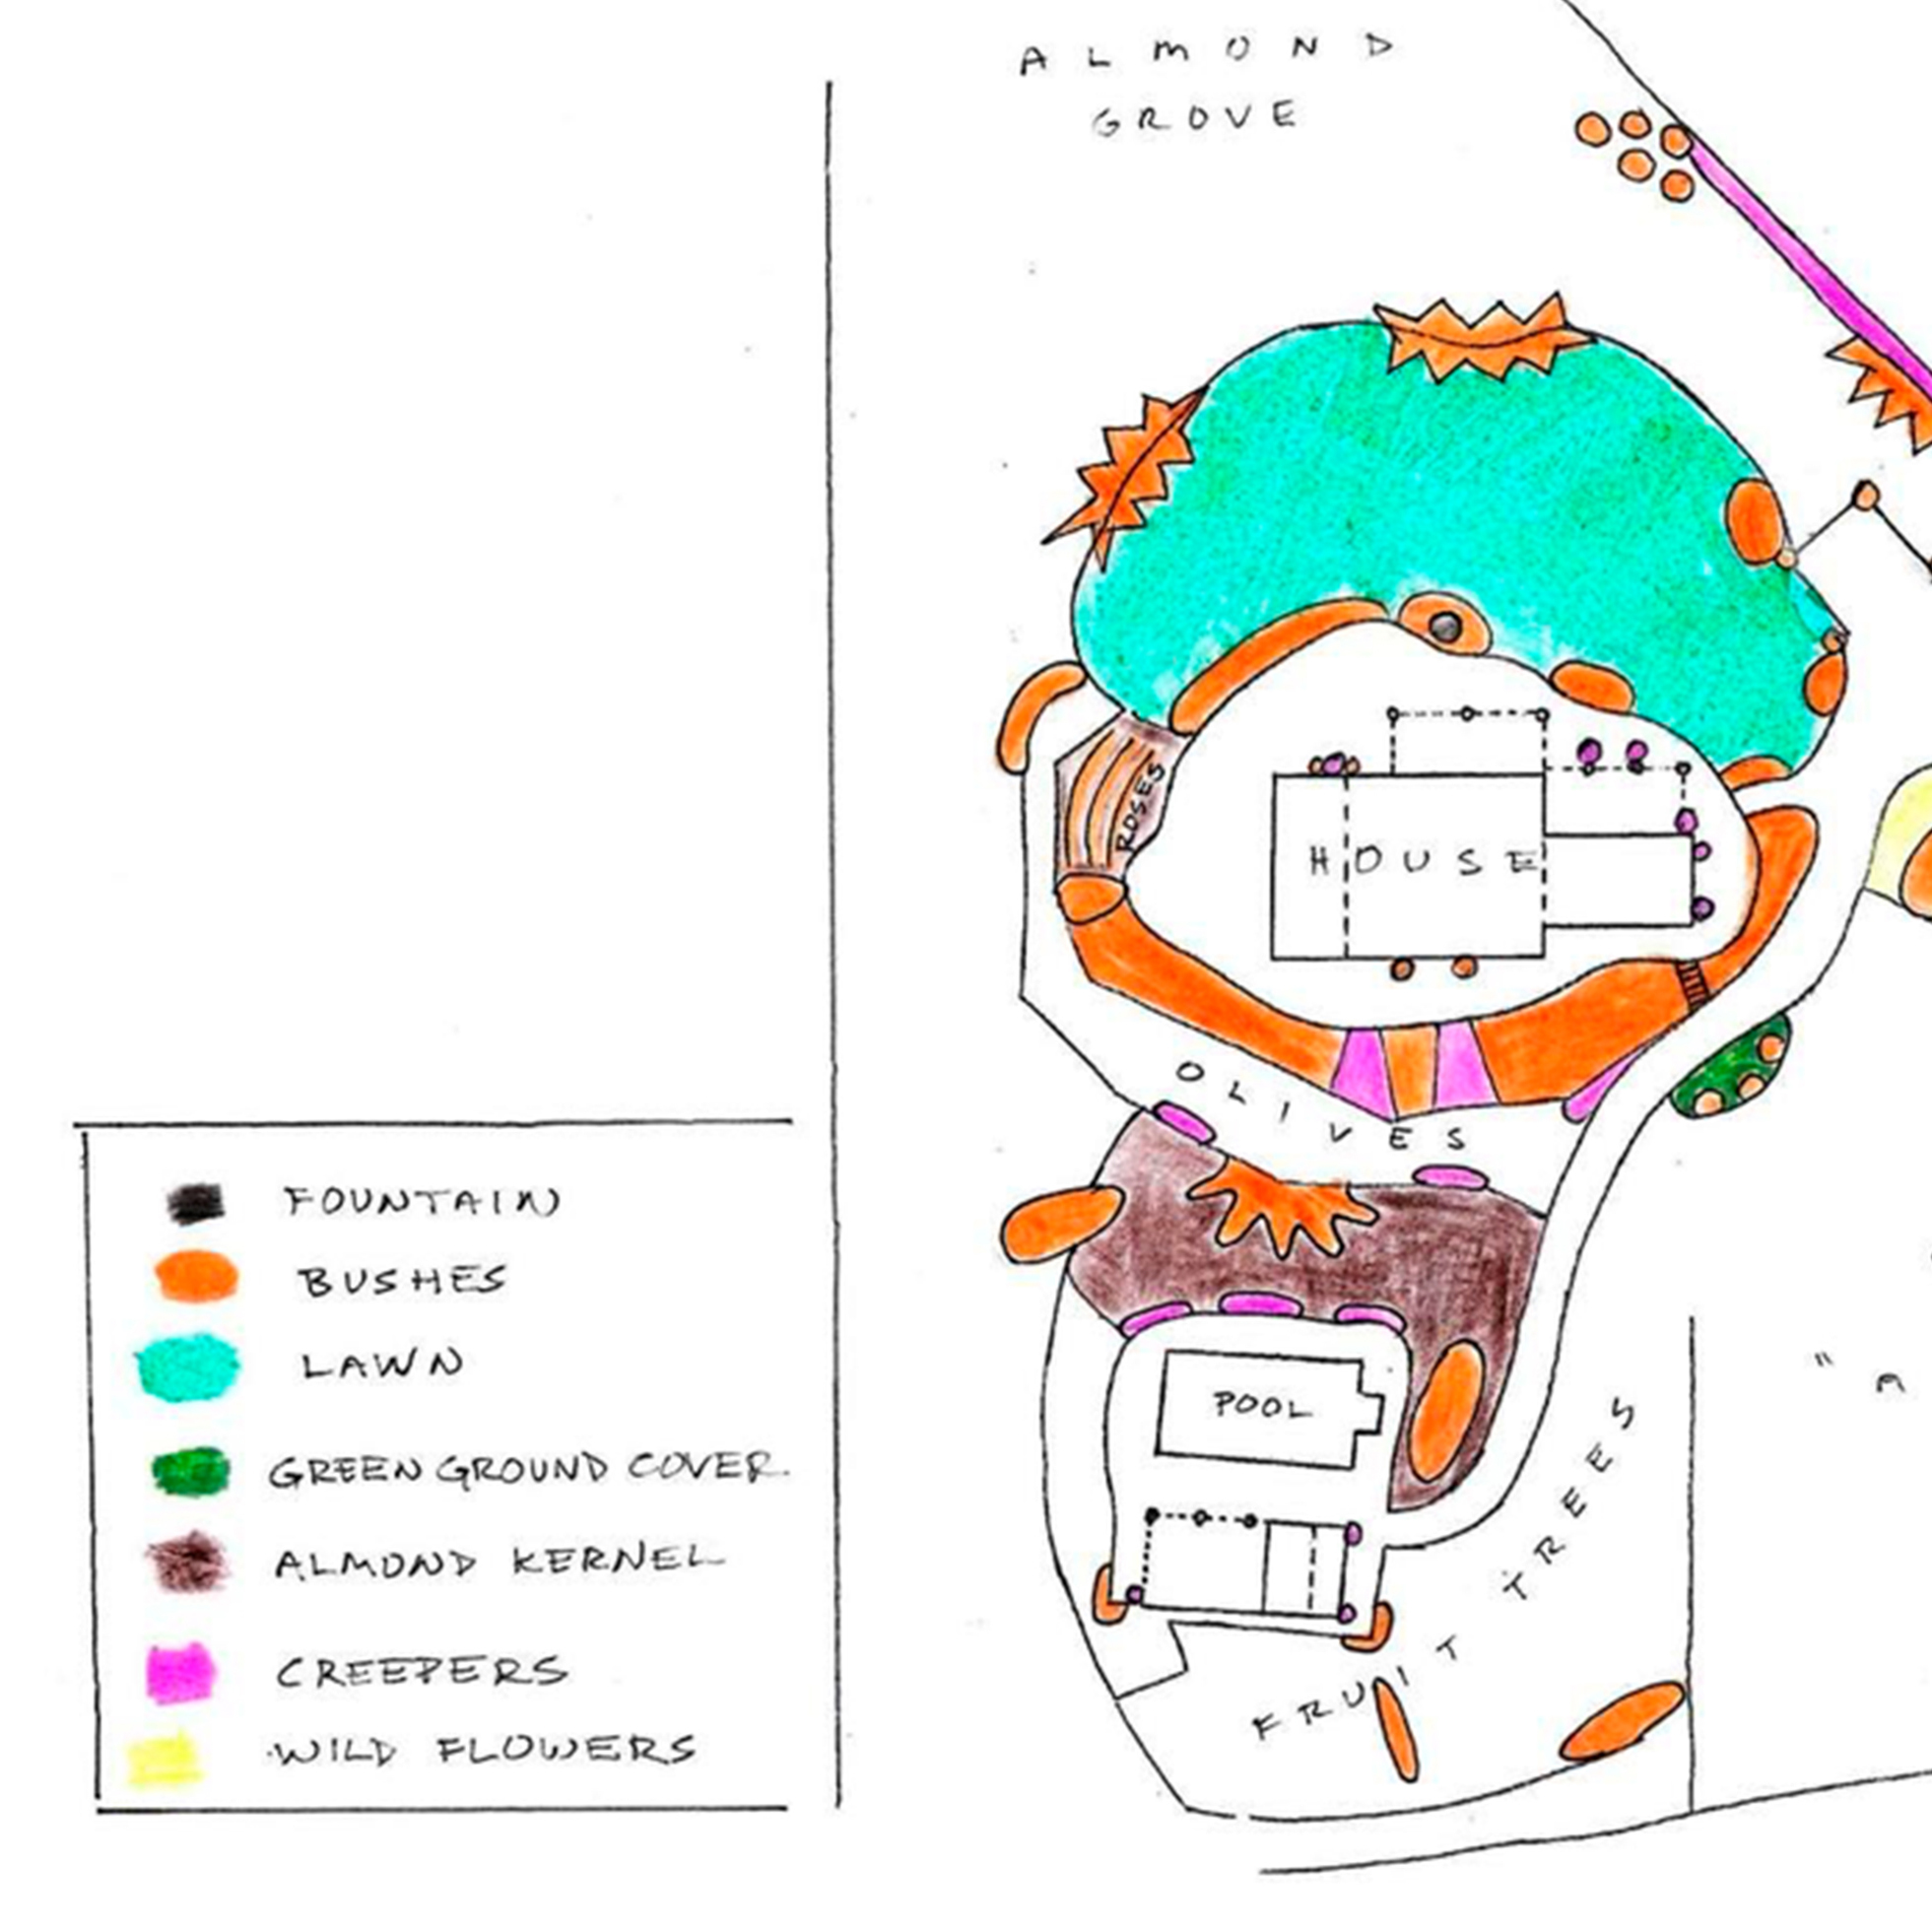 ALMOND
GROVE
ROSES
HOUSE
OLIVES
POOL
FRUIT TREES
FOUNTAIN
BUSHES
LAWN
GREEN GROUND COVER
ALMOND KERNEL
CREEPERS
WILD FLOWERS